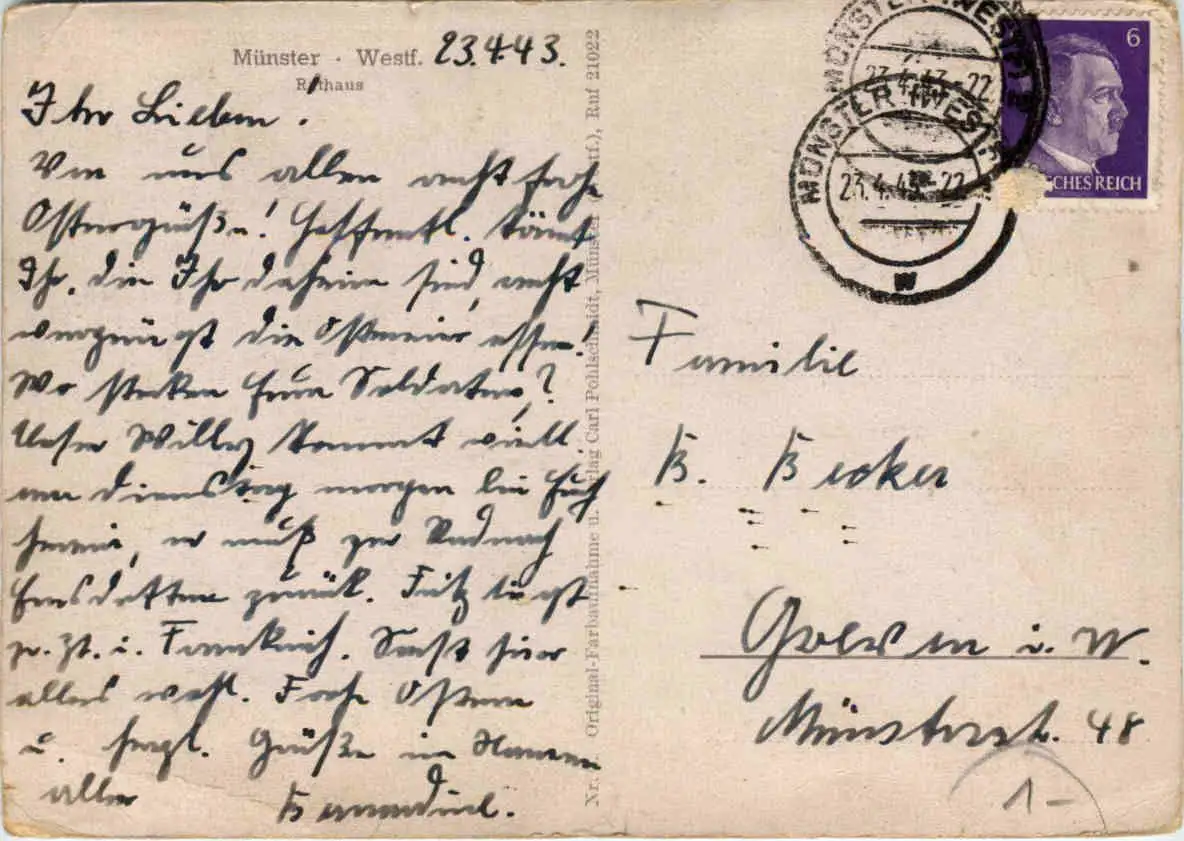 Münster · Westf. 23.4.43.
Rathaus
Ihr Lieben!
Von uns allen recht frohe
Ostergrüße! Hoffentl. könnt
Ihr, die Ihr daheim seid, recht
vergnügt die Ostereier essen!
Wo stecken Eure Soldaten?
Unser Willy kommt viell.
am Dienstag morgen bei Euch
herein, er muß per Rad nach
Emsdetten zurück. Fritz liegt
zr. Zt. i. Frankreich. Sonst hier
alles wohl. Frohe Ostern
u. herzl. Grüße im Namen
aller
Nr.
Original-Farbaufnahme u. Verlag Carl Pohlschmidt, Münster (Westf.), Ruf 21022
MÜNSTER (WESTF)
23.4.43-22
MÜNSTER (WESTF)
23.4.43-22
w
6
DEUTSCHES REICH
Familie
B. Becker
Greven i. W.
Münsterstr. 48
1-